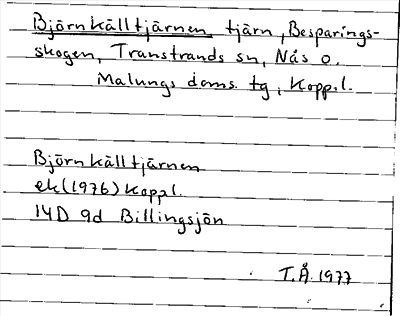 Björnkälltjärnen tjärn, Besparings-
skogen, Transtrands sn, Nås o.
Malungs doms. tg, Koppl.
Björnkälltjärnen
ek(1976) Koppl.
14D 9d Billingsjön
T.Å. 1977